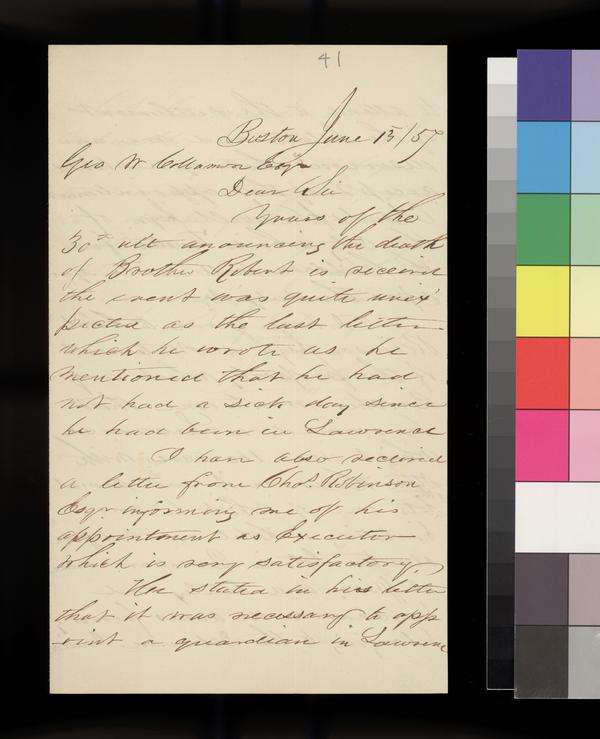 41
Boston June 13/57
Geo W Collamor Esqr
Dear Sir
Yours of the
30th ult anouncing the death
of Brother Robert is received
the event was quite unex
pected as the last letter
which he wrote us he
mentioned that he had
not had a sick day since
he had been in Lawrence
I have also received
a letter from Chas. Robinson
Esqr informing me of his
appointment as Executor
which is very satisfactory.
He stated in his letter
that it was necessary to app
oint a guardian in Lawrence